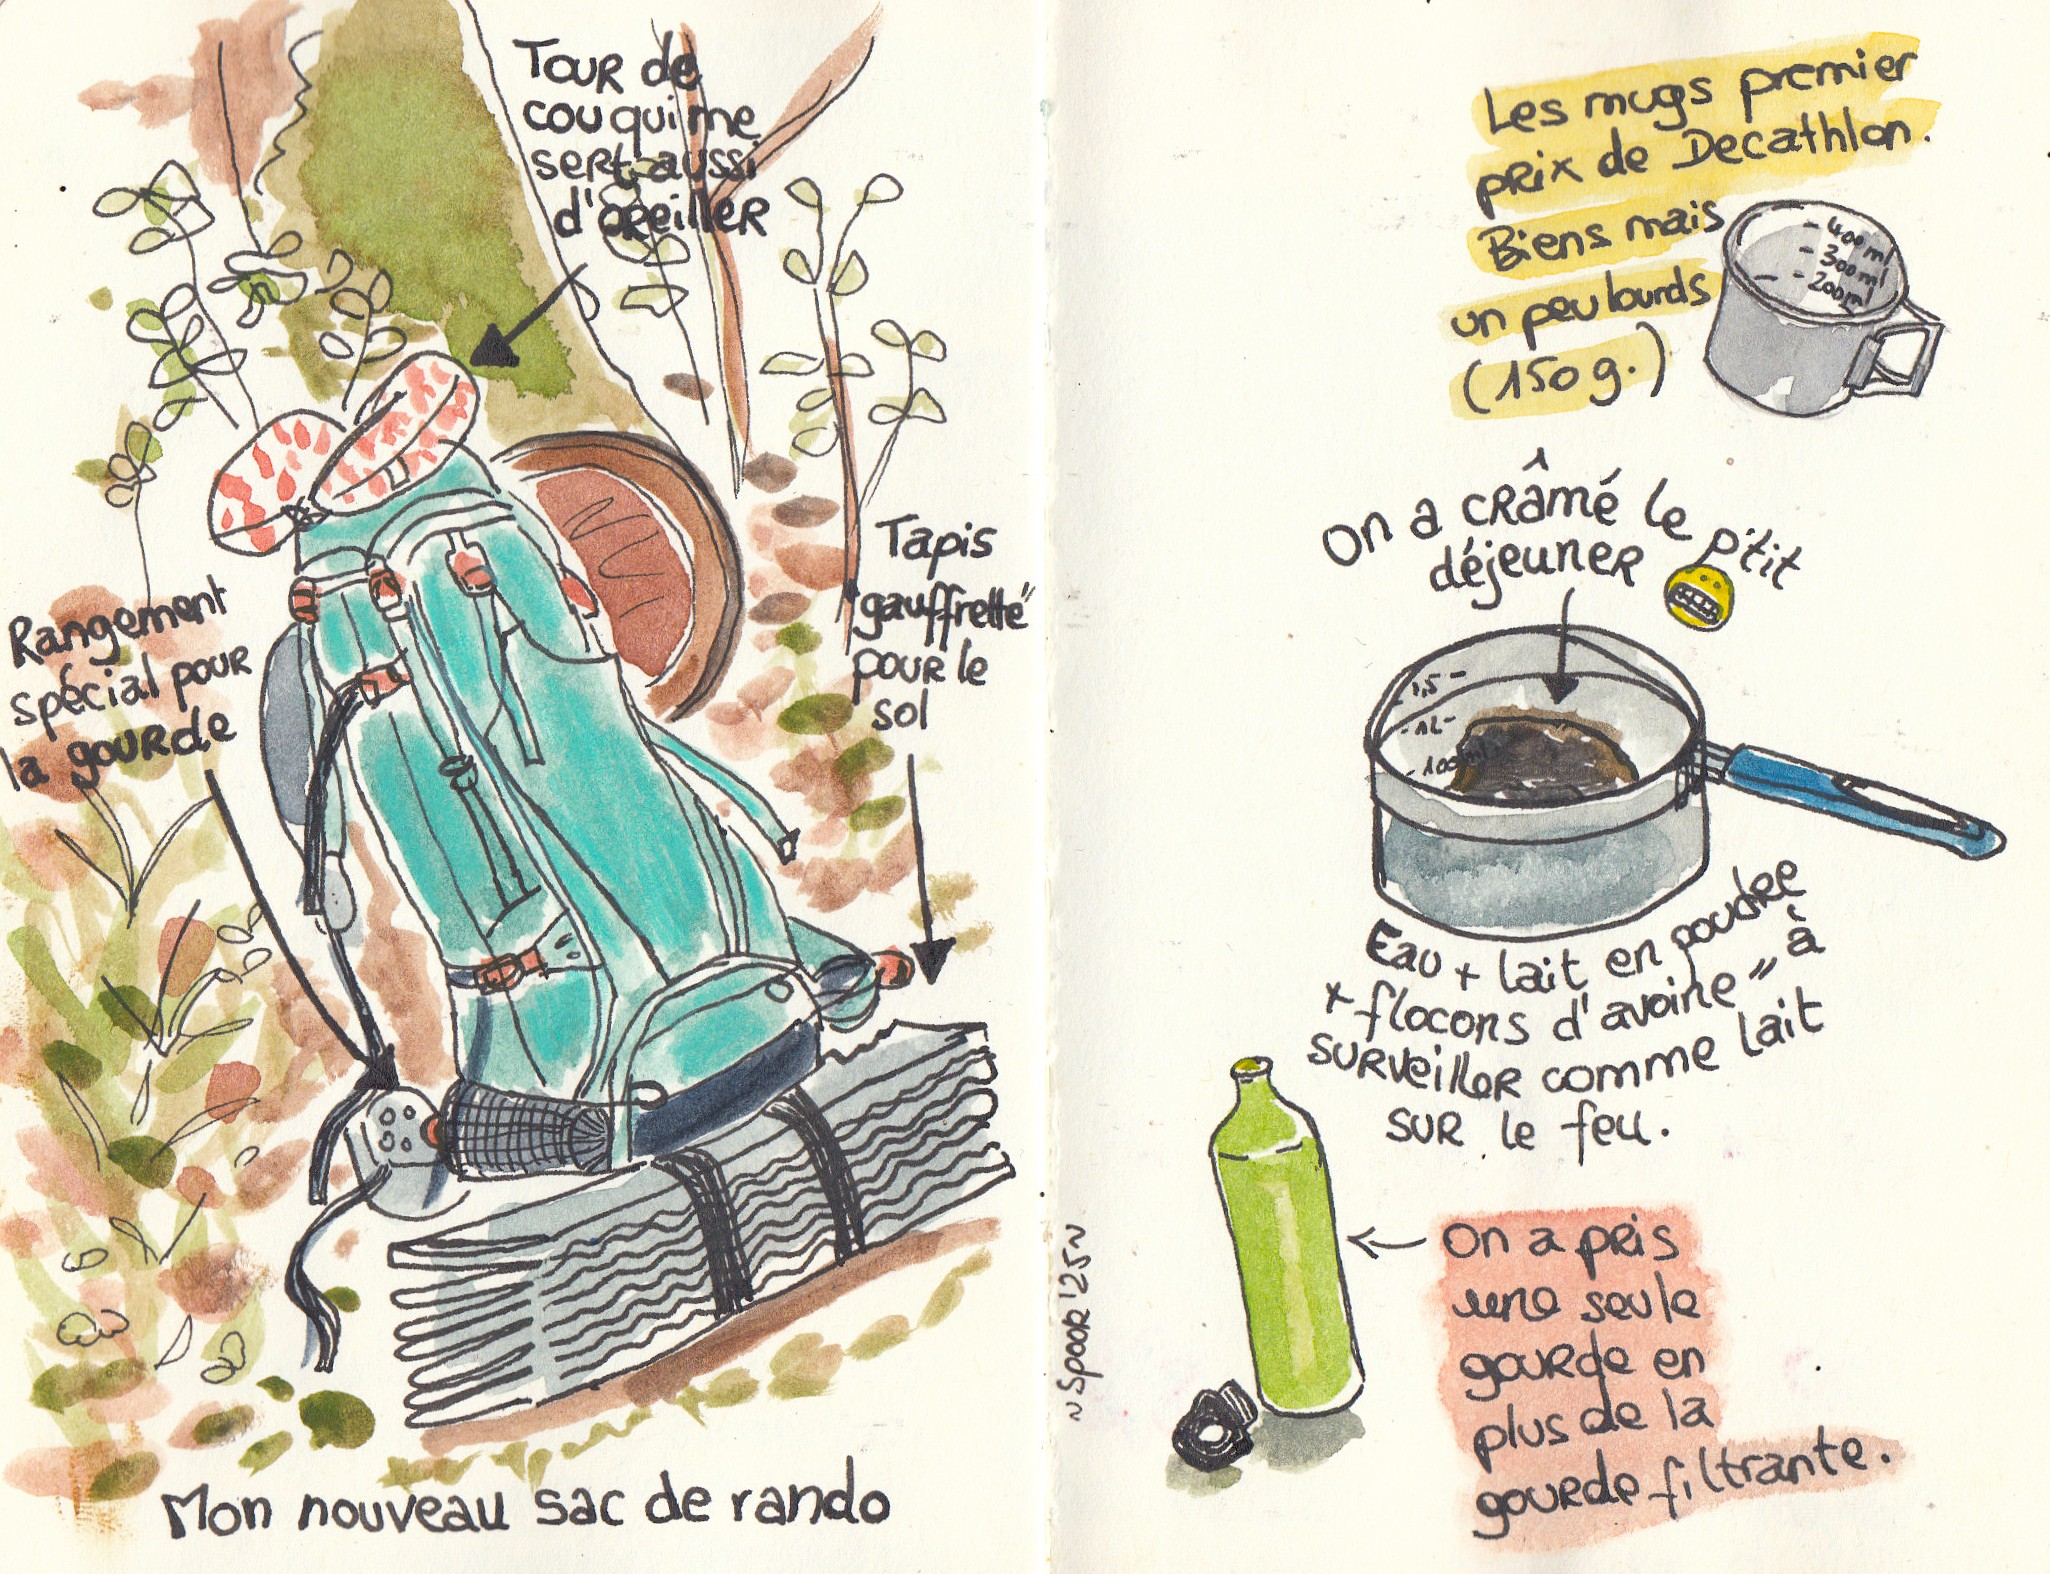 Tour de
cou qui me
sert aussi
d'oreiller
Rangement
spécial pour
la gourde
Tapis
"gauffretté"
pour le
sol
Mon nouveau sac de rando
~ Spoor '25 ~
Les mugs premier
prix de Decathlon.
Biens mais
un peu lourds
(150 g.)
- 400 ml
- 300 ml
- 200 ml
On a crâmé le p'tit
déjeuner
1,5 -
- 1L -
Eau + lait en poudre
+ flocons d'avoine = à
surveiller comme lait
sur le feu.
On a pris
une seule
gourde en
plus de la
gourde filtrante.